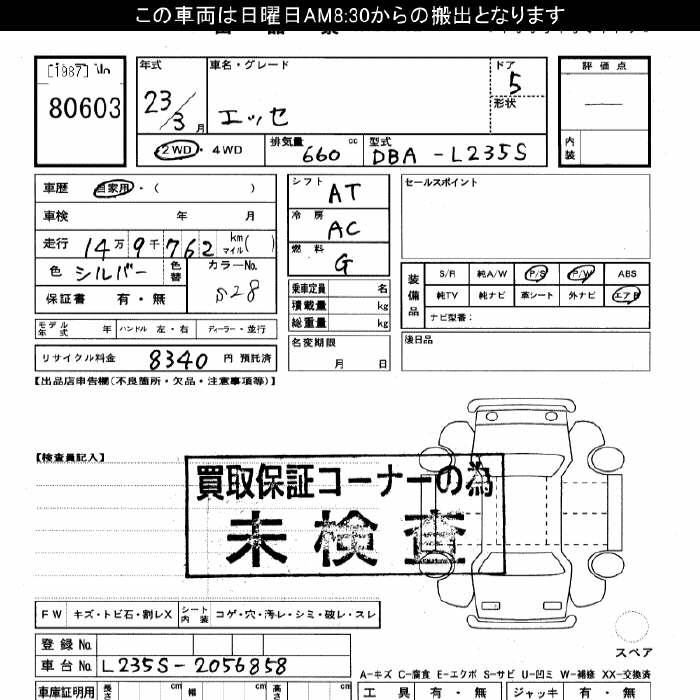 この車両は日曜日AM8:30からの搬出となります
[1987]
80603
年式
23/3月
車名・グレード
エッセ
ドア
5
形状
評価点
—
内装
2WD・4WD
排気量
660 cc
型式
DBA-L235S
車歴 自家用・( )
車検 年 月
走行 14万9千762 km マイル( )
色 シルバー 色替
カラーNo.
S28
保証書 有・無
モデル年式 年 ハンドル 左・右 ディーラー・並行
リサイクル料金 8340 円 預託済
シフト AT
冷房 AC
燃料 G
乗車定員 名
積載量 kg
総重量 kg
名変期限
月 日
セールスポイント
装備品
S/R 純A/W P/S P/W ABS
純TV 純ナビ 革シート 外ナビ エアB
ナビ型番:
後日品
【出品店申告欄(不良箇所・欠品・注意事項等)】
【検査員記入】
買取保証コーナーの為
未検査
FW キズ・トビ石・割レX シート内装 コゲ・穴・汚レ・シミ・破レ・スレ
スペア
登録No.
車台No. L235S-2056858
A-キズ C-腐食 E-エクボ S-サビ U-凹ミ W-補修 XX-交換済
車庫証明用 長さ cm 幅 cm 高さ cm
工具 有・無 ジャッキ 有・無